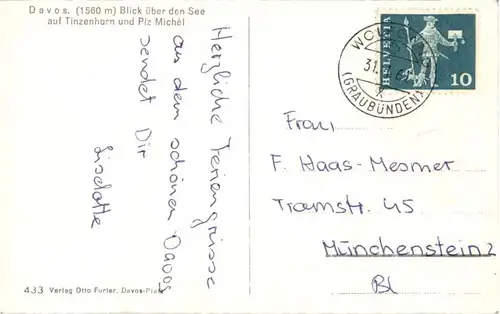 Davos. (1560 m) Blick über den See
auf Tinzenhorn und Piz Michèl
Herzliche Feriengrüsse
aus dem schönen Davos
sendet Dir
Liselotte
433 Verlag Otto Furter, Davos-Platz
HELVETIA
10
(GRAUBÜNDEN)
Frau
F. Haas-Mesmer
Tramstr. 45
Münchenstein 2
BL